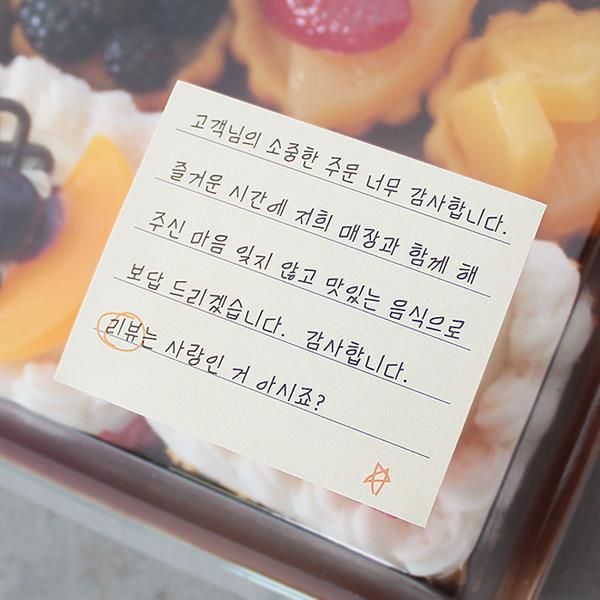 고객님의 소중한 주문 너무 감사합니다.
즐거운 시간에 저희 매장과 함께 해
주신 마음 잊지 않고 맛있는 음식으로
보답 드리겠습니다. 감사합니다.
리뷰는 사랑인 거 아시죠?